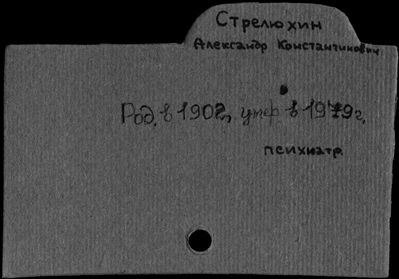 Стрелюхин
Александр Константинович
Род. в 1902, умер в 1979 г.
психиатр.